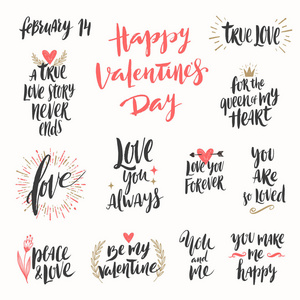 February 14
Happy
Valentine's
Day
TRUE LOVE
A TRUE
LOVE STORY
NEVER
ENDS
for the
queen of my
HEART
love
Love
you
Always
Love you
FOREVER
you
ARE
so Loved
peace
& LOVE
Be my
Valentine
You
and
me
you make
me
happy